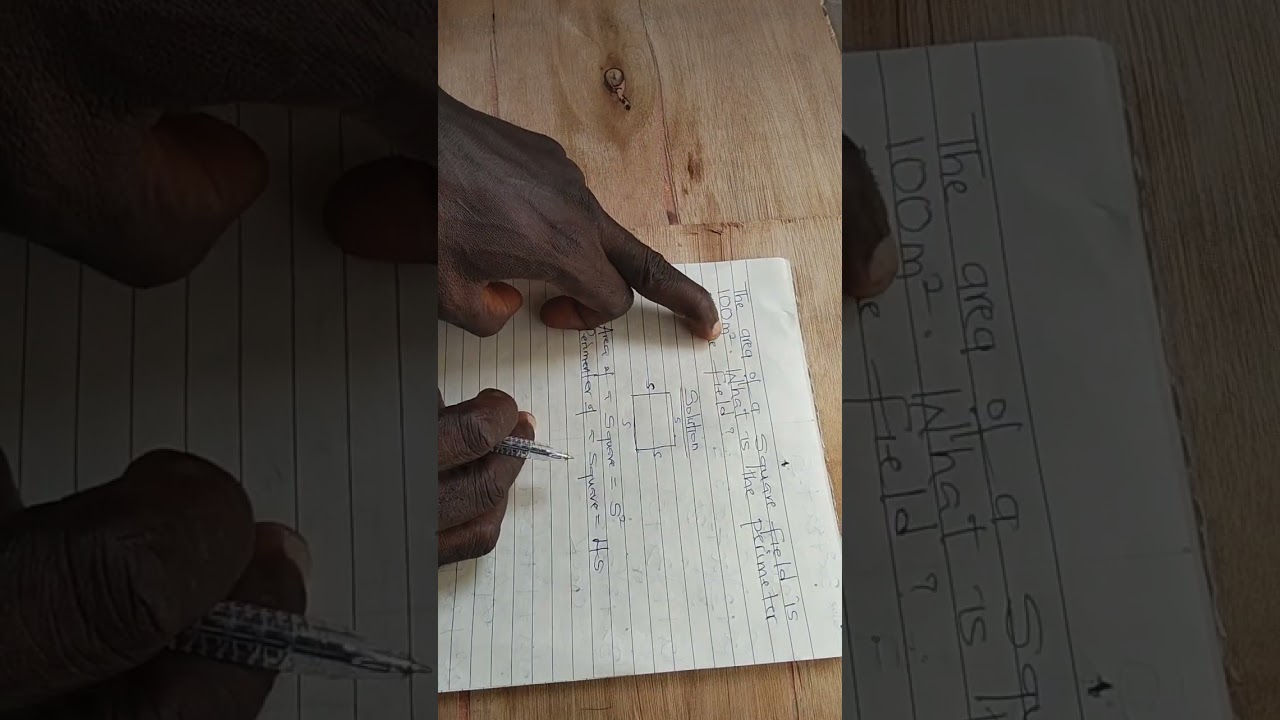 The area of a square field is
100m². What is the perimeter
field?
Solution
s
s
s
s
Area of a square = S²
Perimeter of < square = 4s